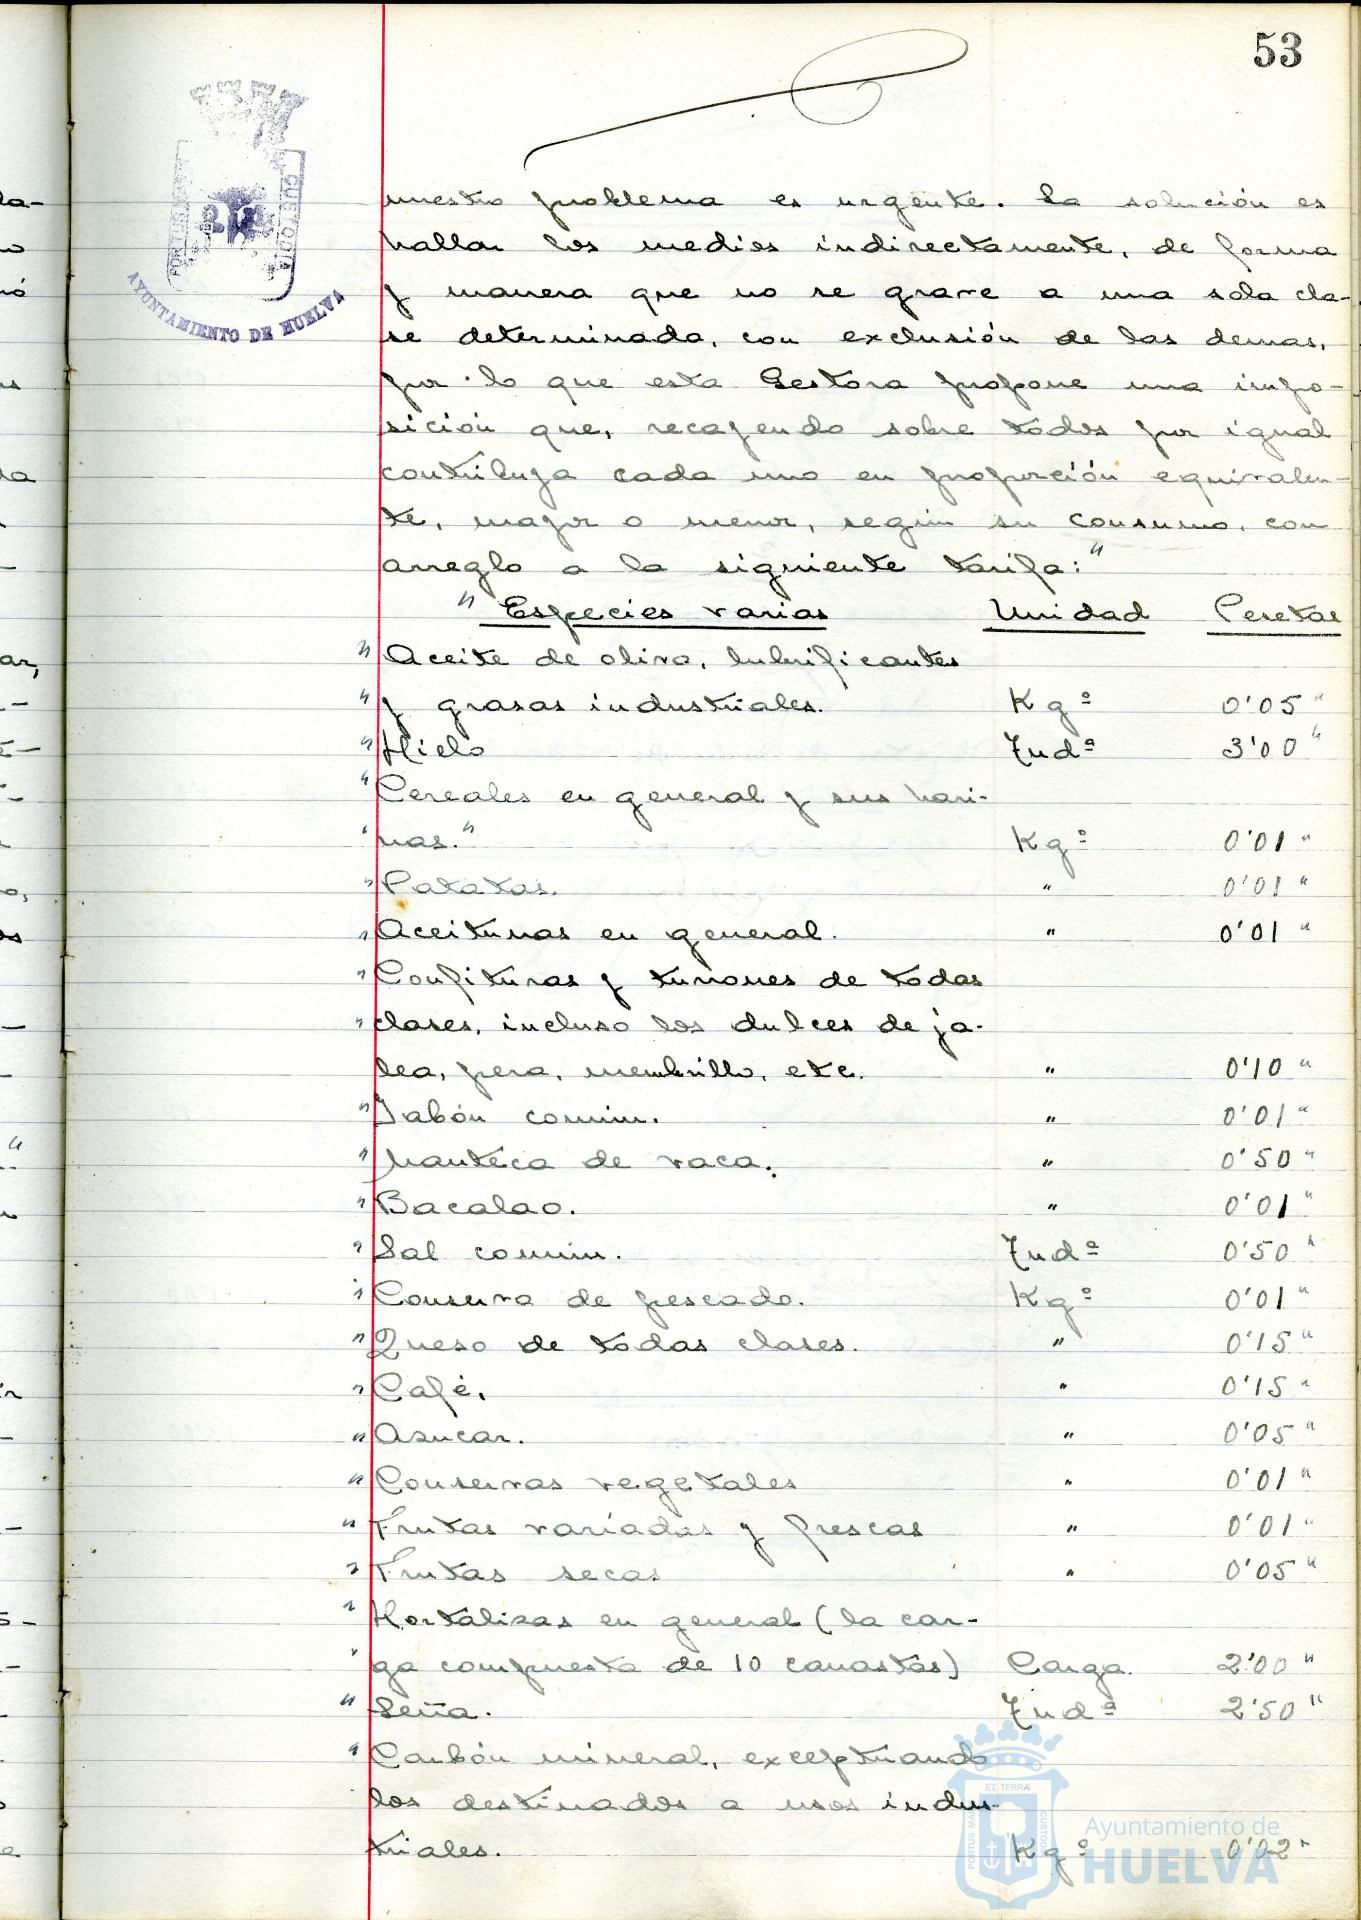 53
PORTUS MARIS CUSTODIA
AYUNTAMIENTO DE HUELVA
nuestro problema es urgente. La solución es
hallar los medios indirectamente, de forma
y manera que no se grave a una sola cla-
se determinada, con exclusión de las demas,
por lo que esta Gestora propone una impo-
sición que, recayendo sobre todos por igual
contribuya cada uno en proporción equivalen-
te, mayor o menor, según su consumo, con
arreglo a la siguiente tarifa:"
" Especies varias Unidad Pesetas
" Aceite de oliva, lubrificantes
" y grasas industriales. Kgº 0'05 "
" Hielo Tndª 3'00 "
" Cereales en general y sus hari-
" nas." Kgº 0'01 "
" Patatas. " 0'01 "
" Aceitunas en general. " 0'01 "
" Confituras y turrones de todas
" clases, incluso los dulces de ja-
lea, pera, membrillo, etc. " 0'10 "
" Jabón comun. " 0'01 "
" Manteca de vaca. " 0'50 "
" Bacalao. " 0'01 "
" Sal comun. Tndª 0'50 "
" Conserva de pescado. Kgº 0'01 "
" Queso de todas clases. " 0'15 "
" Café. " 0'15 "
" Asucar. " 0'05 "
" Conservas vegetales " 0'01 "
" Frutas variadas y frescas " 0'01 "
" Frutas secas " 0'05 "
" Hortalizas en general (la car-
" ga compuesta de 10 canastas) Carga. 2'00 "
" Leña. Tndª 2'50 "
" Carbón mineral, exceptuando
los destinados a usos indus-
triales. Kgº 0'02 "
PORTUS MARIS ET TERRÆ CUSTODIA
Ayuntamiento de
HUELVA